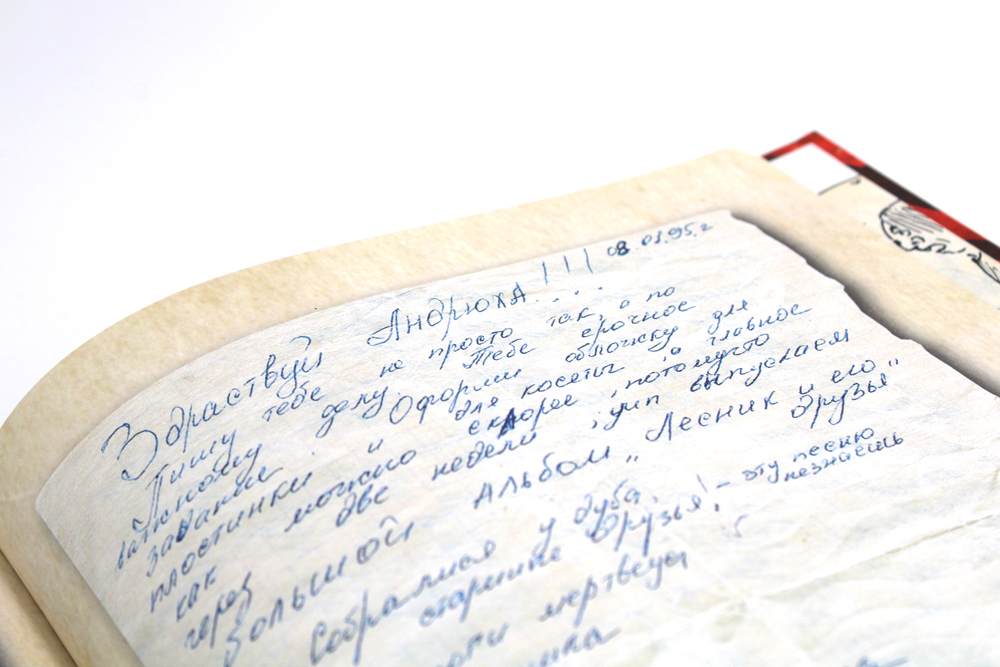 08.03.95г
Здраствуй Андрюха!!!...
Пишу тебе не просто так, а по
важному делу. Тебе срочное
задание. Оформи обложку для
пластинки и для косеты, а главное
как можно скорее, потомучто
через две недели, уип выпускаем
Большой Альбом „Лесник и его
друзья"
Собрались у дуба,
старшие друзья! - эту песню
незнаешь
мертвеца